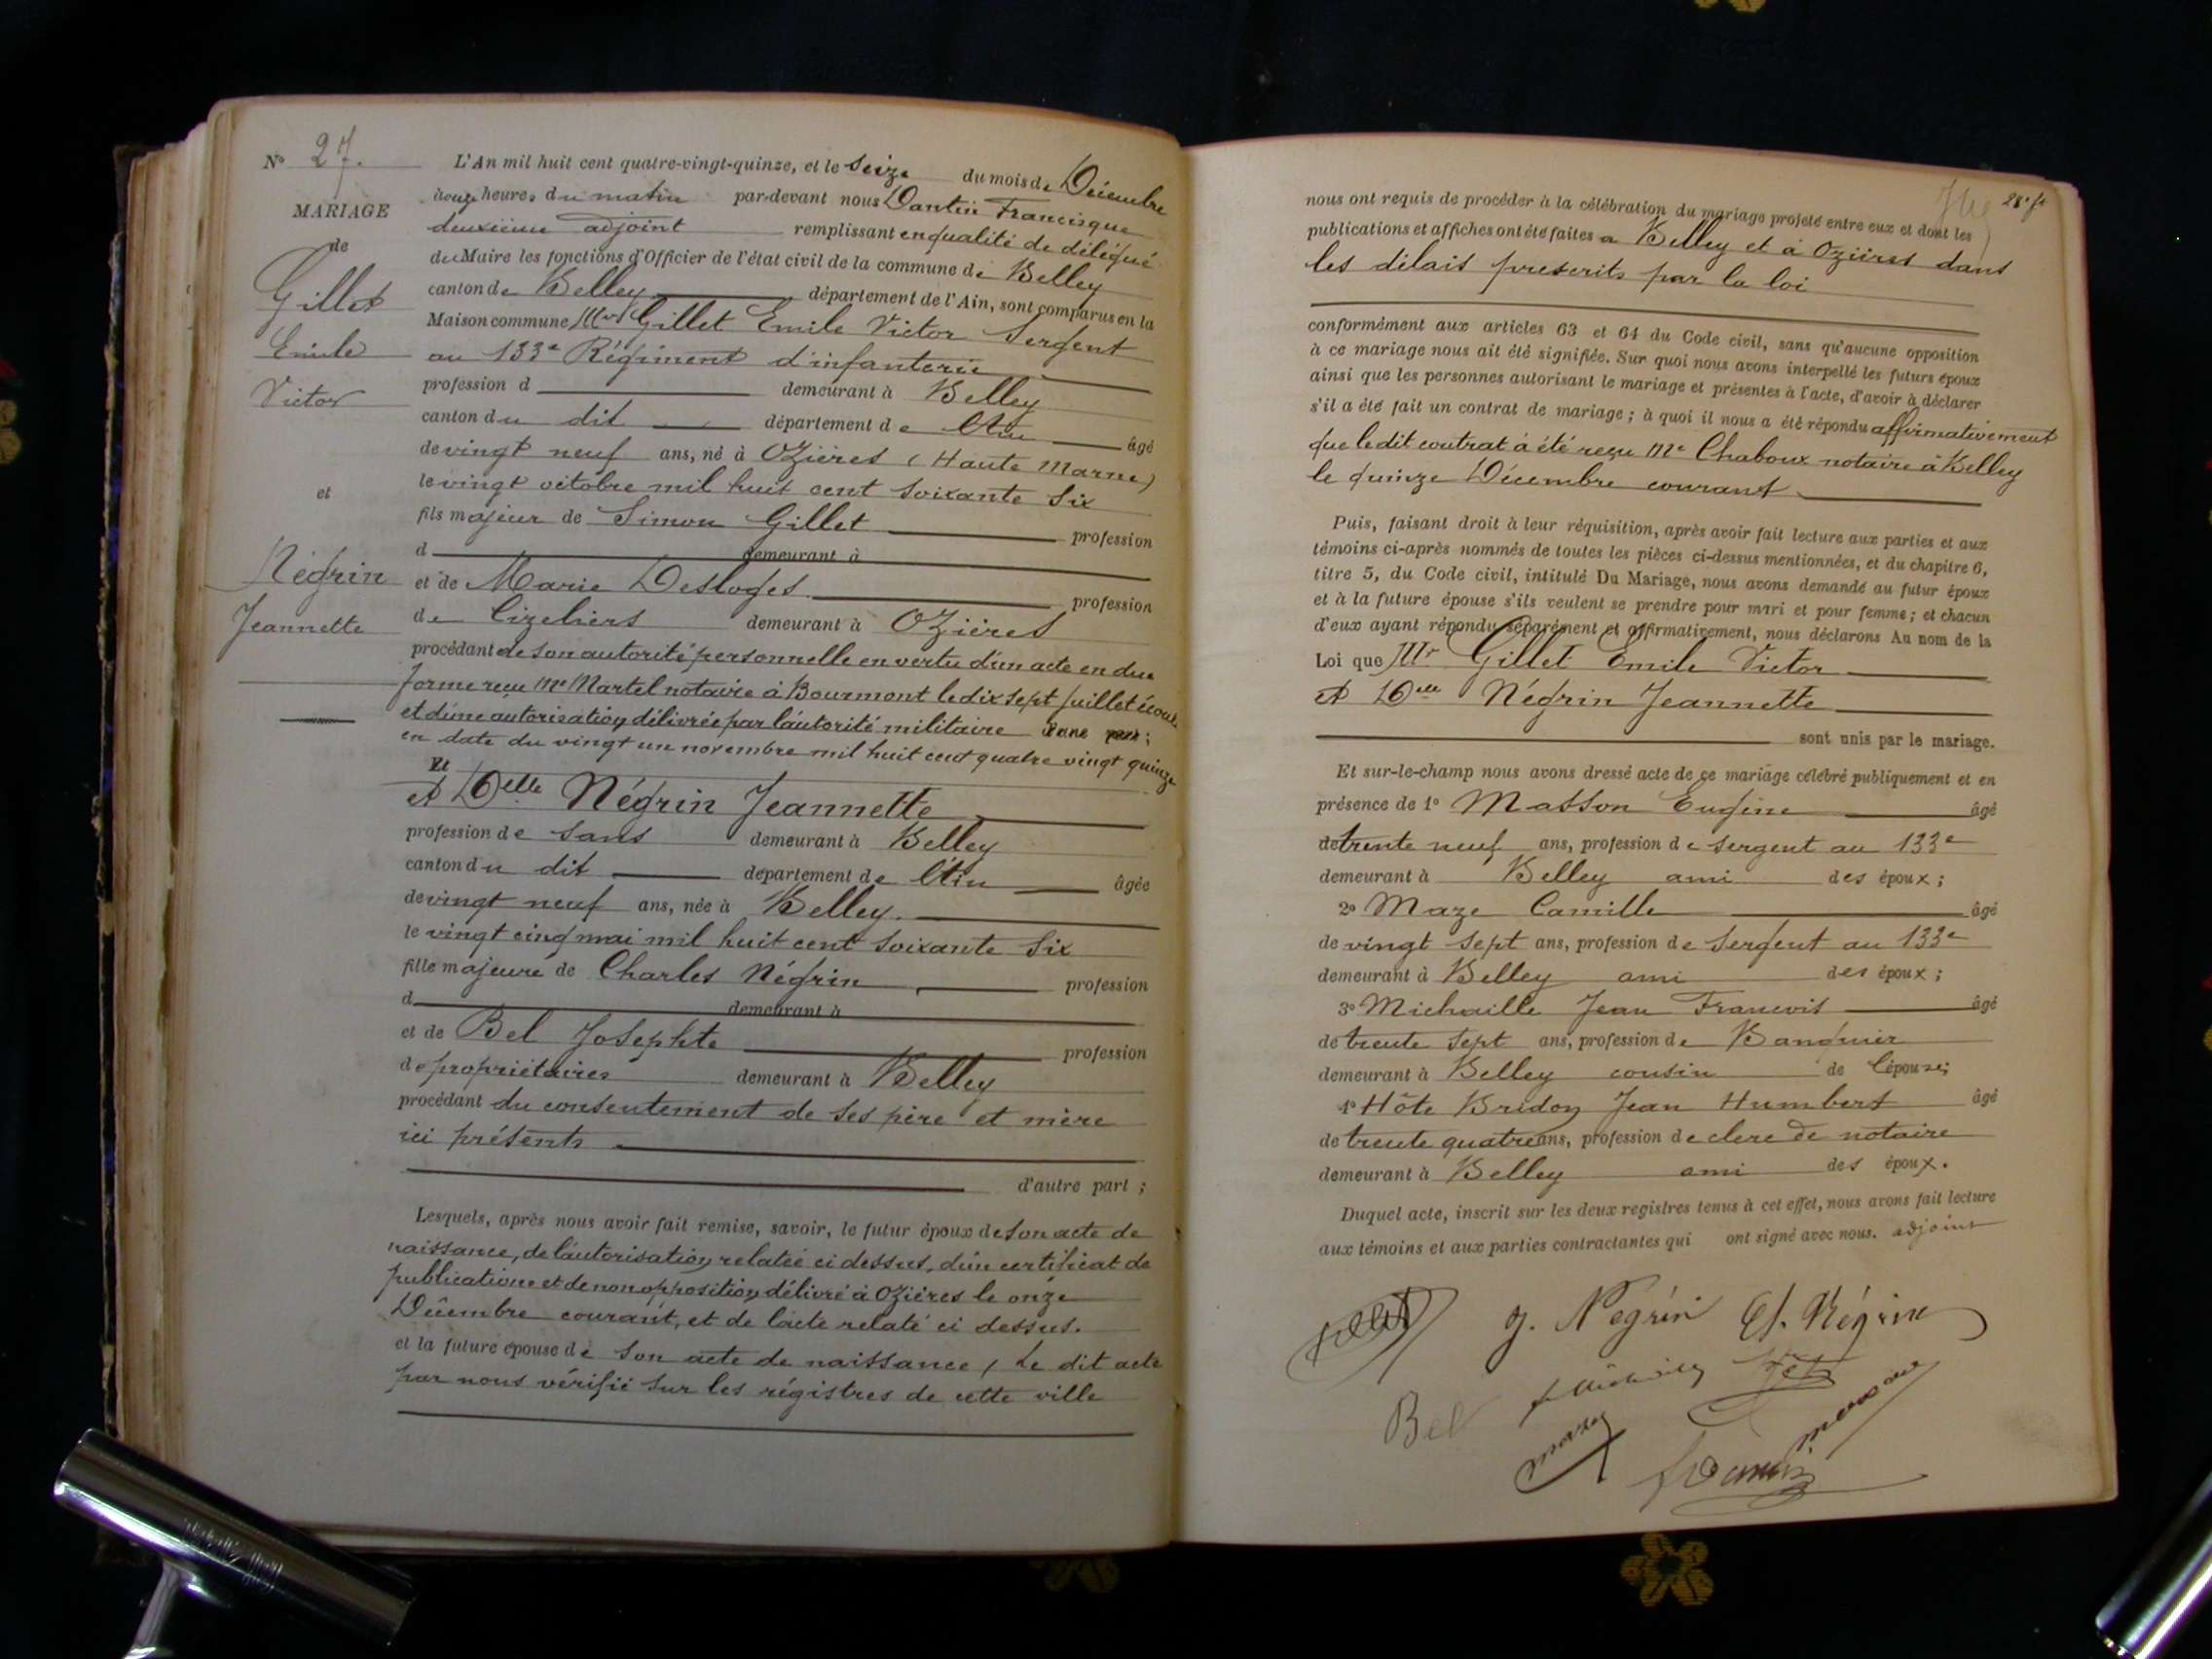 N° 27.
MARIAGE
de
Gillet
Emile
Victor
et
Négrin
Jeannette
L'An mil huit cent quatre-vingt-quinze, et le seize du mois de Décembre
douze heures du matin par-devant nous Dantin Francisque
deuxième adjoint remplissant en qualité de délégué
du Maire les fonctions d'Officier de l'état civil de la commune de Belley
canton de Belley département de l'Ain, sont comparus en la
Maison commune Mr Gillet Emile Victor Sergent
au 133e Régiment d'infanterie
profession d demeurant à Belley
canton du dit département de l'Ain âgé
de vingt neuf ans, né à Ozières (Haute Marne)
le vingt octobre mil huit cent soixante six
fils majeur de Simon Gillet profession
d demeurant à
et de Marie Desloges profession
de demeurant à Ozières
procédant de son autorité personnelle en vertu d'un acte en due
forme reçu Me Martel notaire à Bourmont le dix sept juillet écoulé
et d'une autorisation délivrée par l'autorité militaire d'une part;
en date du vingt un novembre mil huit cent quatre vingt quinze
Et
et Delle Négrin Jeannette
profession de sans demeurant à Belley
canton du dit département de l'Ain âgée
de vingt neuf ans, née à Belley.
le vingt cinq mai mil huit cent soixante six
fille majeure de Charles Négrin profession
d demeurant à
et de Bel Josephte profession
de propriétaires demeurant à Belley
procédant du consentement de ses père et mère
ici présents
d'autre part;
Lesquels, après nous avoir fait remise, savoir, le futur époux de son acte de
naissance, de l'autorisation relatée ci dessus, d'un certificat de
publications et de non opposition délivré à Ozières le onze
Décembre courant, et de l'acte relaté ci dessus.
et la future épouse de son acte de naissance, Le dit acte
par nous vérifié sur les régistres de cette ville
28e ft
nous ont requis de procéder à la célébration du mariage projeté entre eux et dont les
publications et affiches ont été faites à Belley et à Ozières dans
les délais prescrits par la loi
conformément aux articles 63 et 64 du Code civil, sans qu'aucune opposition
à ce mariage nous ait été signifiée. Sur quoi nous avons interpellé les futurs époux
ainsi que les personnes autorisant le mariage et présentes à l'acte, d'avoir à déclarer
s'il a été fait un contrat de mariage; à quoi il nous a été répondu affirmativement
que le dit contrat à été reçu Me Chaboux notaire à Belley
le quinze Décembre courant
Puis, faisant droit à leur réquisition, après avoir fait lecture aux parties et aux
témoins ci-après nommés de toutes les pièces ci-dessus mentionnées, et du chapitre 6,
titre 5, du Code civil, intitulé Du Mariage, nous avons demandé au futur époux
et à la future épouse s'ils veulent se prendre pour mari et pour femme; et chacun
d'eux ayant répondu séparément et affirmativement, nous déclarons Au nom de la
Loi que Mr Gillet Emile Victor
et Delle Négrin Jeannette
sont unis par le mariage.
Et sur-le-champ nous avons dressé acte de ce mariage célébré publiquement et en
présence de 1° Masson Eugène âgé
de trente neuf ans, profession de sergent au 133e
demeurant à Belley ami des époux;
2° Maze Camille âgé
de vingt sept ans, profession de sergent au 133e
demeurant à Belley ami des époux;
3° Michaille Jean Francois âgé
de trente sept ans, profession de Banquier
demeurant à Belley cousin de l'épouse;
4° Hôte Bridon Jean Humbert âgé
de trente quatre ans, profession de clerc de notaire
demeurant à Belley ami des époux.
Duquel acte, inscrit sur les deux registres tenus à cet effet, nous avons fait lecture
aux témoins et aux parties contractantes qui ont signé avec nous. adjoint
J. Négrin Ch. Négrin
Bel